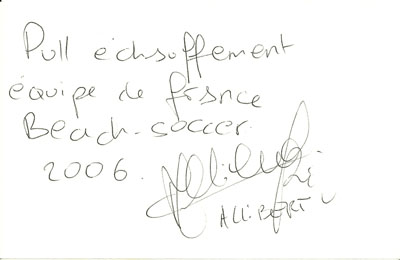 Pull échauffement
équipe de france
Beach-soccer
2006.
ALLIBERT